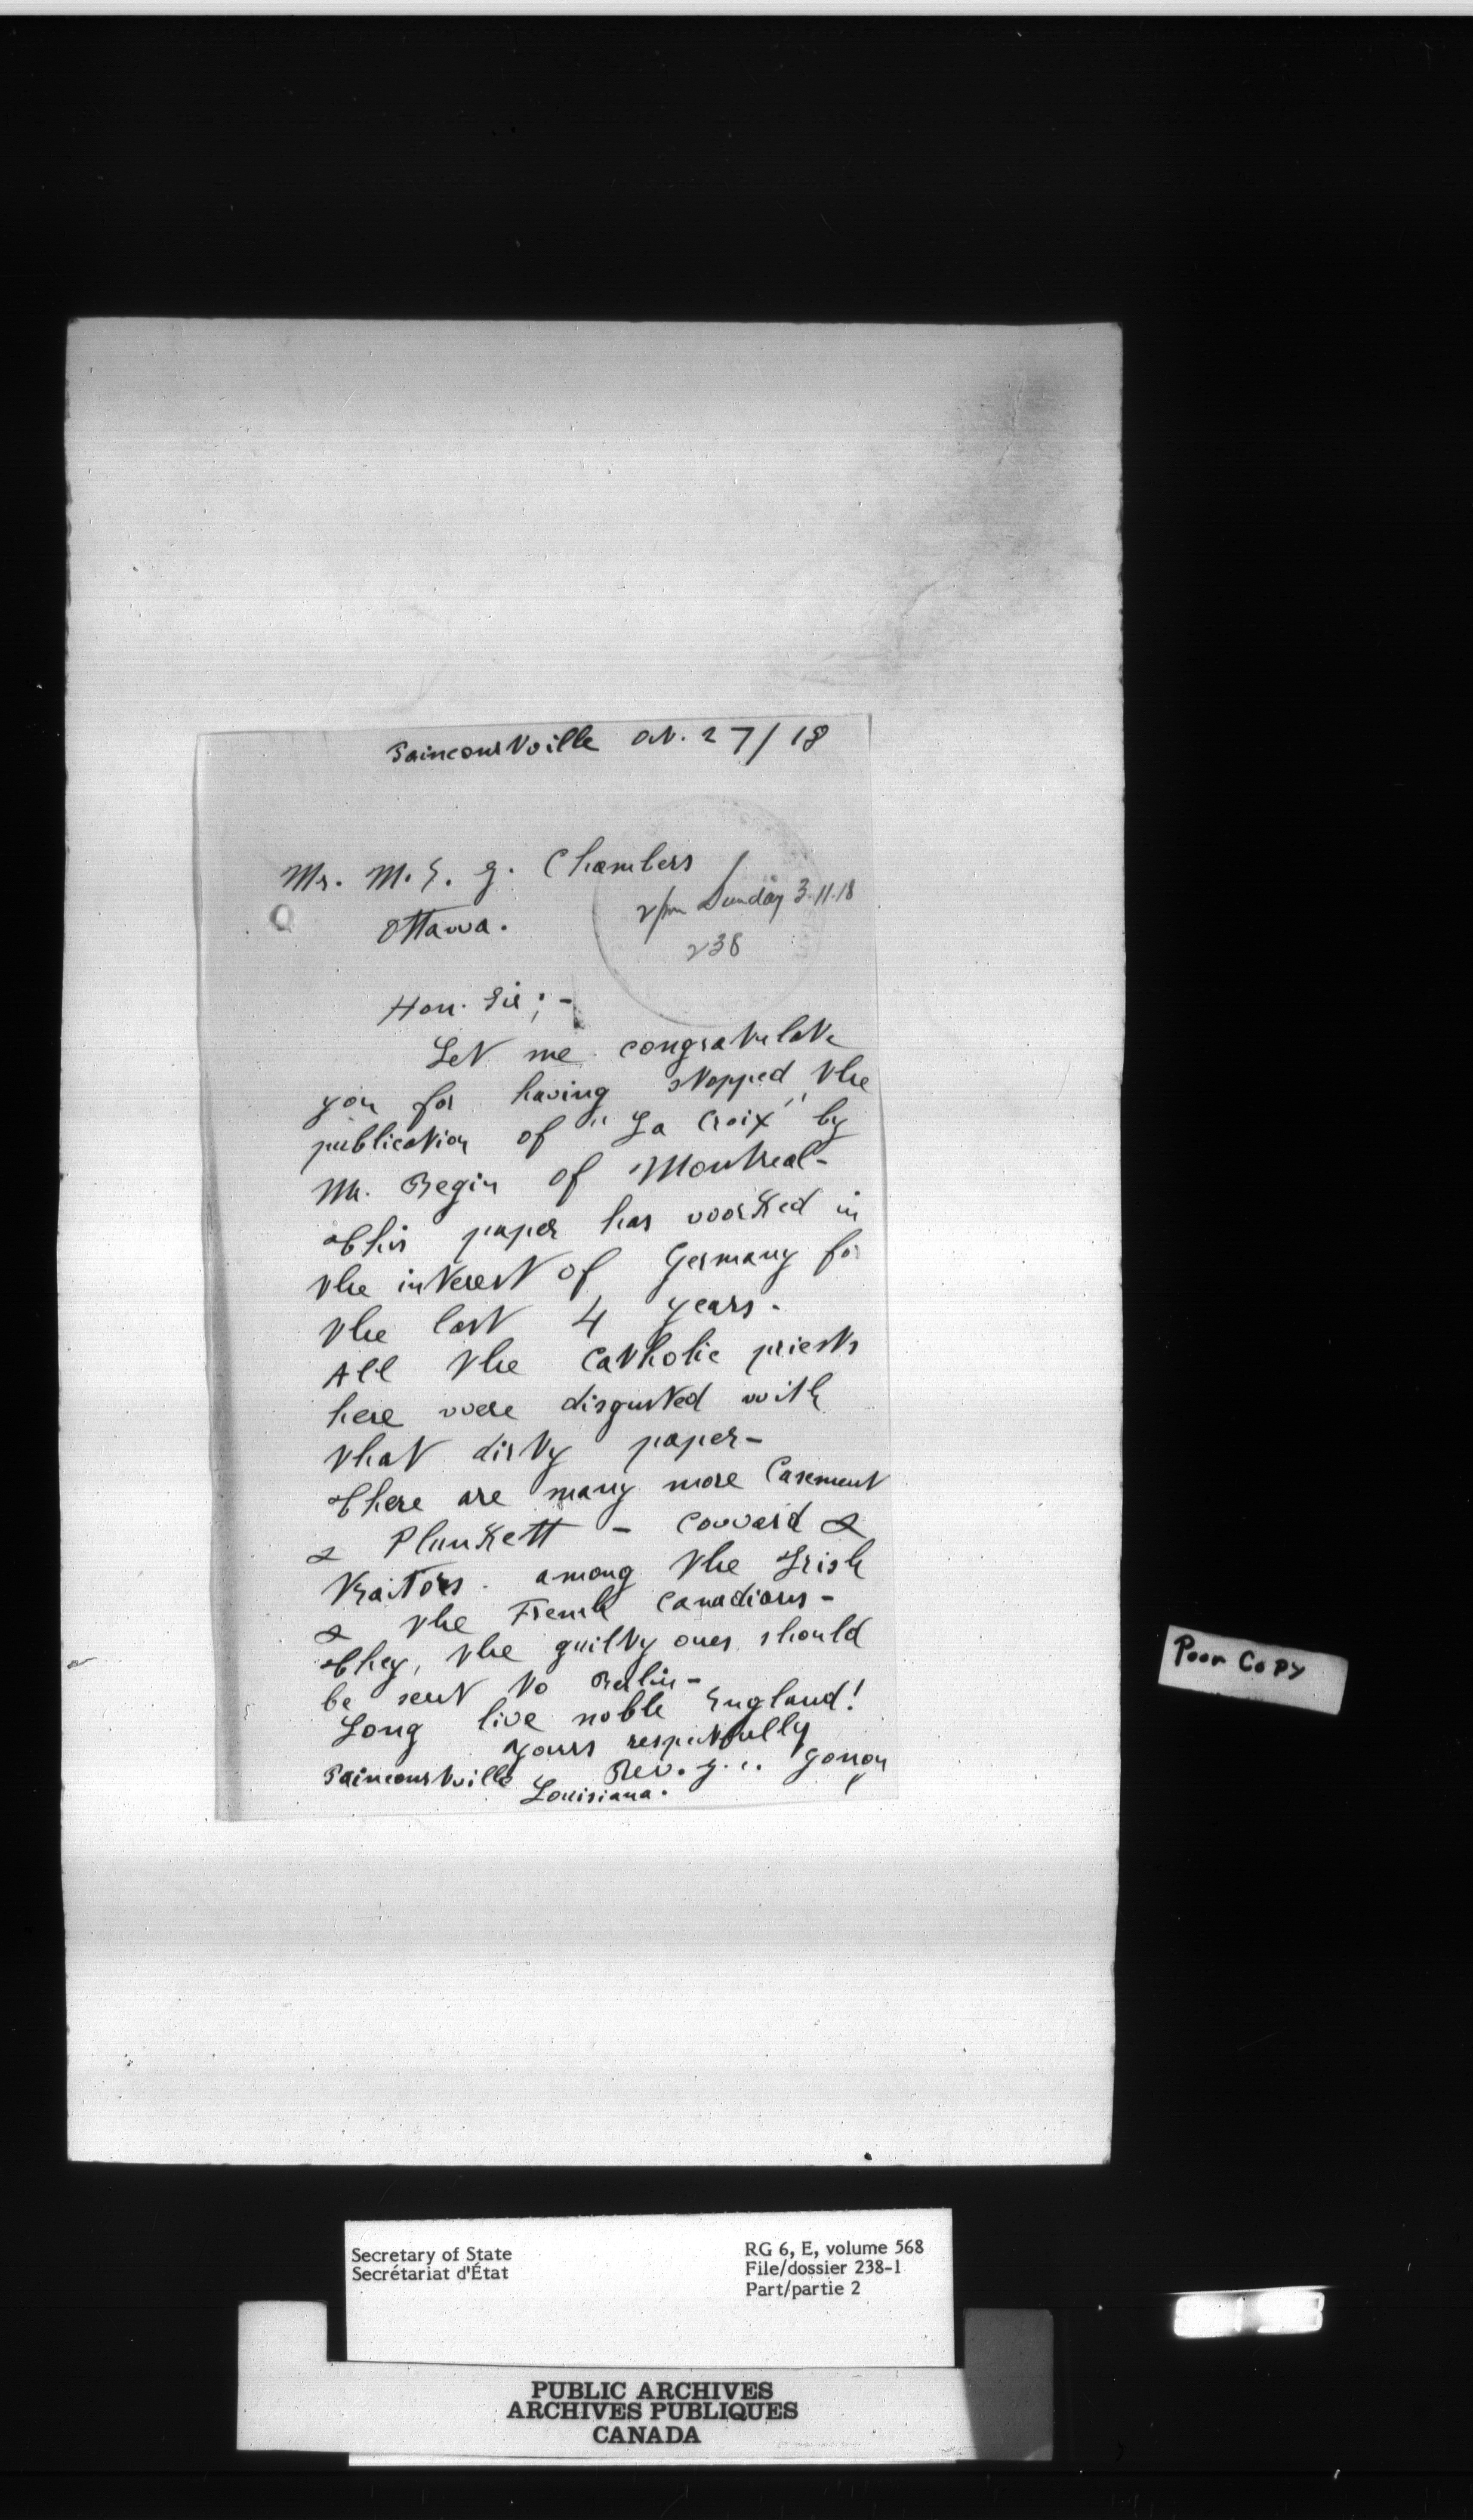 Paincourtville Oct. 27/18
Mr. M. E. G. Chambers
Ottawa.
2pm Sunday 3.11.18
238
Hon. Sir; -
Let me congratulate
you for having stopped the
publication of "La Croix" by
Mr. Begin of Montreal-
This paper has worked in
the interest of Germany for
the last 4 years.
All the Catholic priests
here were disgusted with
that dirty paper-
There are many more Casement
& Plunkett - coward &
traitors. among the Irish
& the French Canadians-
They, the guilty ones should
be sent to Berlin-
Long live noble England!
Yours respectfully
Rev. J.
Paincourtville
Louisiana.
Poor Copy
Secretary of State
Secrétariat d'État
RG 6, E, volume 568
File/dossier 238-1
Part/partie 2
PUBLIC ARCHIVES
ARCHIVES PUBLIQUES
CANADA